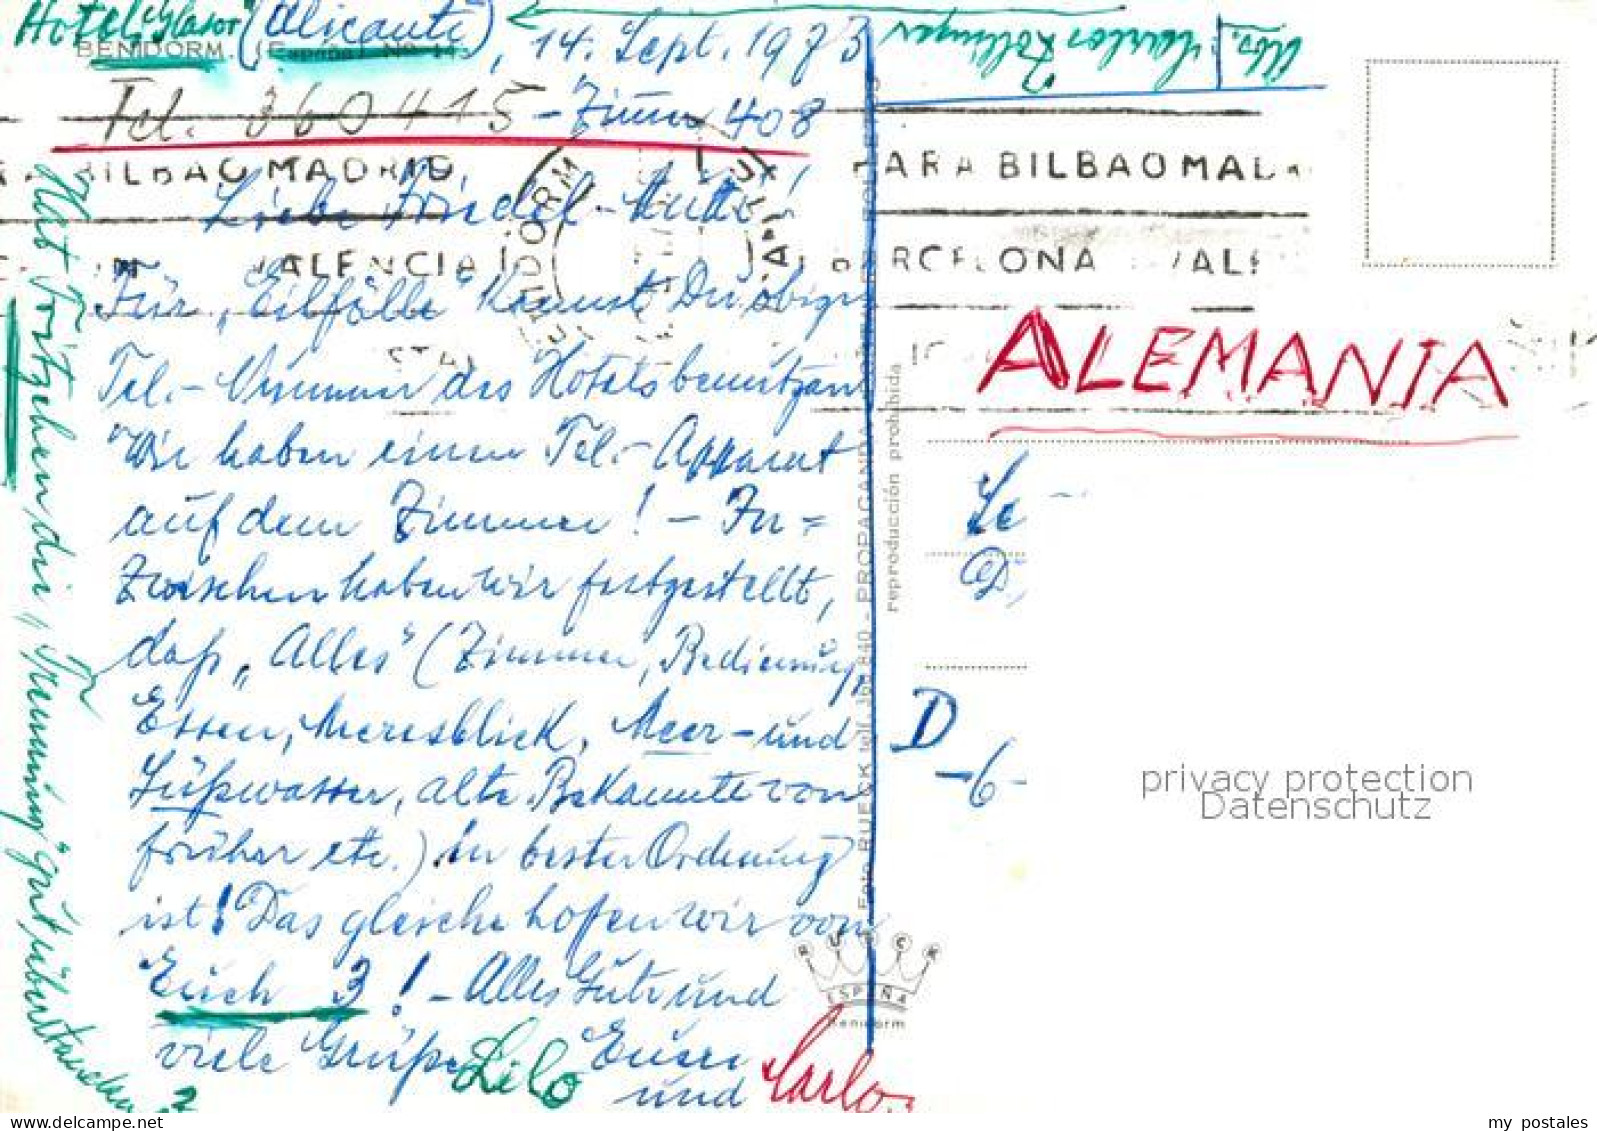 Hotel "Glasor" (Alicante)
BENIDORM. (España) No
, 14. Sept. 1973
Tel. 360415 - Zimm 408
BILBAO MADRID
VALENCIA
BENIDORM
Liebe Friedel-Mutti!
Für "Eilfälle" kannst Du obige
Tel.-Nummer des Hotels benützen
Wir haben einen Tel.-Apparat
auf dem Zimmer! - In=
zwischen haben wir festgestellt,
daß "Alles" (Zimmer, Bedienung,
Essen, Meeresblick, Meer- und
Süßwasser, alte Bekannte von
früher etc.) in bester Ordnung
ist! Das gleiche hofen wir von
Euch 3! - Alles Gute und
viele Grüße Euere
Lilo und Carlo
Hat Fritzchen die "Trennung" gut überstanden?
Abs. Carlos
PARA BILBAO MAD
BARCELONA VALE
ALEMANIA
D
-6-
Foto RUECK telf. 360 840 - PROPAGANDA
reproducción prohibida
RUECK
ESPAÑA
Benidorm
privacy protection
Datenschutz
my postales